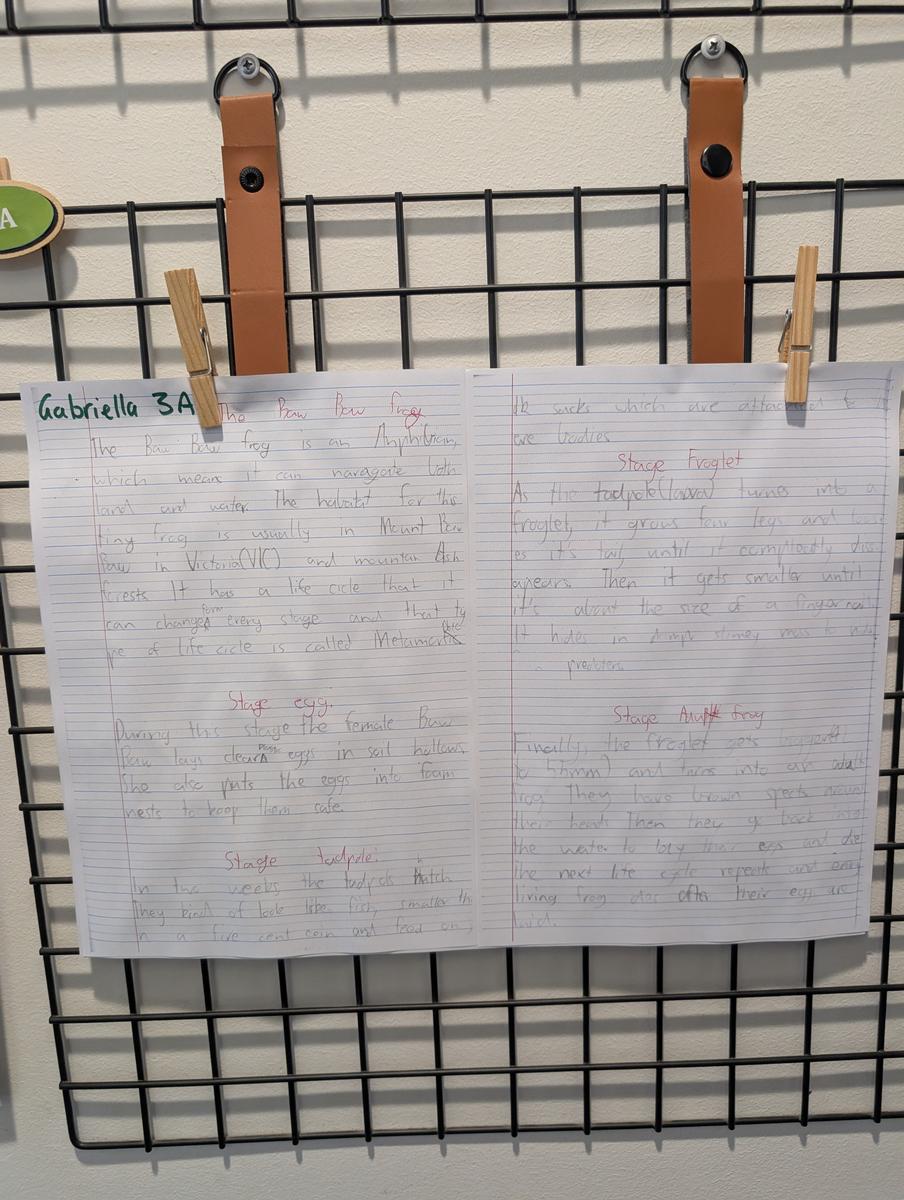 A
Gabriella 3A
The Baw Baw frog
The Baw Baw frog is an Amphibian,
which means it can naragate both
land and water. The habitat for this
tiny frog is usually in Mount Baw
Baw in Victoria(VIC) and mountain Ash
forests. It has a life cicle that it
can change form every stage and that ty
pe of life cicle is called
Stage egg.
During this stage the female Baw
Baw lays clear eggs in soil hollows
She also puts the eggs into foam
nests to keep them safe.
Stage tadpole.
In two weeks, the tadpols hatch
They kind of look like fish, smaller tha
n a five cent coin and feed on
sacks which are attached
bodies
Stage Froglet
As the tadpole(larva) turns into a
froglet, it grows four legs and loos
es it's tail until it completly diss
apears. Then it gets smaller until
it's about the size of a fingernail
It hides in damp slimey moss
predators.
Stage Adult frog
Finally, the froglet gets
to 55mm) and turns into an adult
frog They have brown spects around
their heads Then they go back into
the water to lay their eggs and die
the next life cycle repeats and every
living frog dies after their egg are
laid.